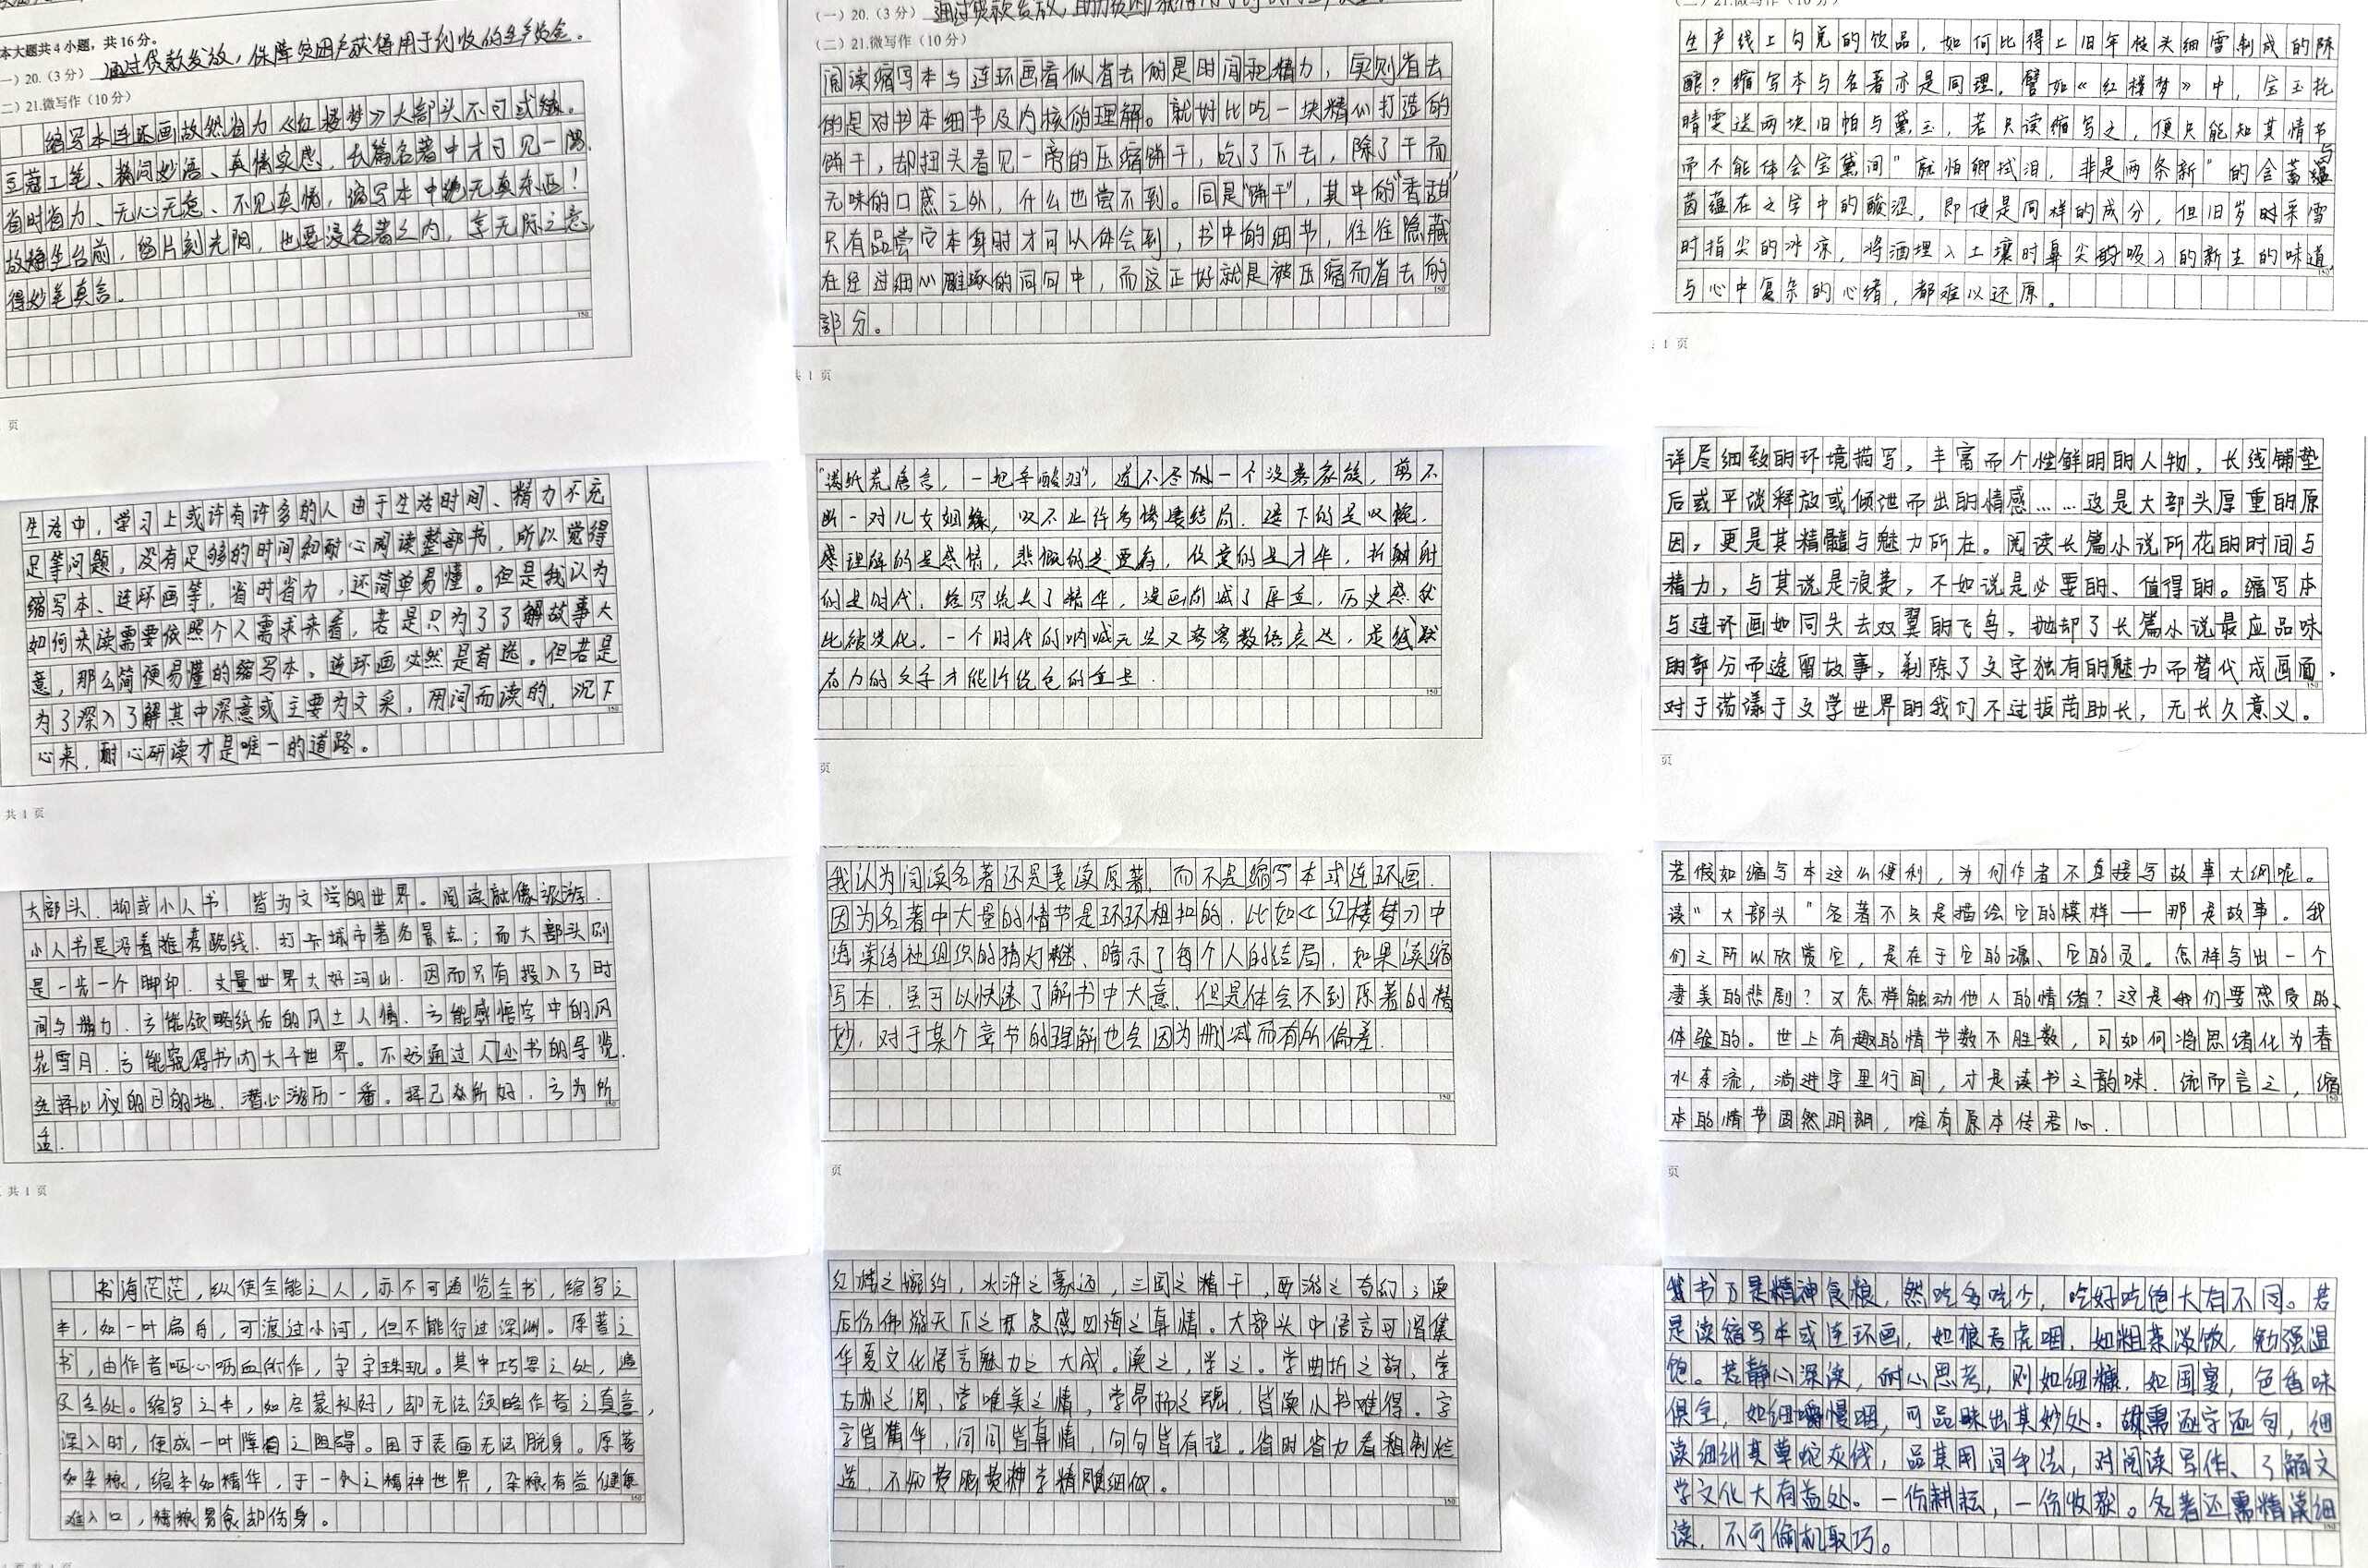 本大题共4小题，共16分。
（一）20.（3分）通过贷款发放，保障贫困户获得用于创收的生产资金。
（二）21.微写作（10分）
缩写本连环画故然省力《红楼梦》大部头不可或缺。
豆蔻工笔、精词妙语、真情实感，长篇名著中才可见一隅。
省时省力、无心无意、不见真情，缩写本中绝无真东西！
故静坐台前，留片刻光阴，也要浸名著之内，享无际之意，
得妙笔真言。
150
页
（一）20.（3分）
（二）21.微写作（10分）
阅读缩写本与连环画看似省去的是时间和精力，实则省去
的是对书本细节及内核的理解。就好比吃一块精心打造的
饼干，却扭头看见一旁的压缩饼干，吃了下去，除了干而
无味的口感之外，什么也尝不到。同是“饼干”，其中的“香甜”
只有品尝它本身时才可以体会到，书中的细节，往往隐藏
在经过细心雕琢的词句中，而这正好就是被压缩而省去的
150
部分。
共 1 页
（二）21.微写作（10分）
生产线上勾兑的饮品，如何比得上旧年枝头细雪制成的陈
酿？缩写本与名著亦是同理。譬如《红楼梦》中，宝玉托
晴雯送两块旧帕与黛玉，若只读缩写之，便只能知其情节
而不能体会宝黛间“就怕卿拭泪，非是两条新”的含蓄与
茵蕴在文字中的酸涩。即使是同样的成分，但旧岁时采雪
时指尖的冰凉，将酒埋入土壤时鼻尖吸入的新生的味道
150
与心中复杂的心绪，都难以还原。
1 页
生活中，学习上或许有许多的人由于生活时间、精力不充
足等问题，没有足够的时间和耐心阅读整部书，所以觉得
缩写本、连环画等，省时省力，还简单易懂。但是我认为
如何来读需要依照个人需求来看，若是只为了了解故事大
意，那么简便易懂的缩写本。连环画必然是首选。但若是
为了深入了解其中深意或主要为文采，用词而读的，沉下
150
心来，耐心研读才是唯一的道路。
共 1 页
“满纸荒唐言，一把辛酸泪”，道不尽的一个没落家族，剪不
断一对儿女姻缘，叹不止许多惨凄结局。
个时代的呐喊
力的文字才能
150
页
详尽细致的环境描写，丰富而个性鲜明的人物，长线铺垫
后或平淡释放或倾泄而出的情感……这是大部头厚重的原
因，更是其精髓与魅力所在。阅读长篇小说所花的时间与
精力，与其说是浪费，不如说是必要的、值得的。缩写本
与连环画如同失去双翼的飞鸟，抛却了长篇小说最应品味
的部分而追留故事，剥除了文字独有的魅力而替代成画面，
150
对于荡漾于文学世界的我们不过拔苗助长，无长久意义。
页
大部头、抑或小人书，皆为文学的世界。阅读就像旅游，
小人书是沿着推荐路线，打卡城市著名景点；而大部头则
是一步一个脚印，丈量世界大好河山。因而只有投入了时
间与精力，方能领略纸后的风土人情、方能感悟字中的风
花雪月，方能窥得书内大千世界。不妨通过小人书的导览，
选择心仪的目的地，潜心游历一番。择己所好，方为所
150
适。
共 1 页
我认为阅读名著还是要读原著，而不是缩写本或连环画。
因为名著中大量的情节是环环相扣的，比如《红楼梦》中
海棠诗社组织的猜灯谜，暗示了每个人的结局，如果读缩
写本，虽可以快速了解书中大意，但是体会不到原著的精
妙，对于某个章节的理解也会因为删减而有所偏差。
150
页
若假如缩写本这么便利，为何作者不直接写故事大纲呢。
读“大部头”名著不只是描绘它的模样——那是故事。我
们之所以欣赏它，是在于它的魂、它的灵。怎样写出一个
凄美的悲剧？又怎样触动他人的情绪？这是我们要想反的、
体验的。世上有趣的情节数不胜数，可如何将思绪化为春
水东流，淌进字里行间，才是读书之韵味。统而言之，缩
150
本的情节固然明朗，唯有原本传君心。
页
书海茫茫，纵使全能之人，亦不可遍览全书，缩写之
本，如一叶扁舟，可渡过小河，但不能行过深渊。原著之
书，由作者呕心呖血所作，字字珠玑。其中巧思之处，遍
及全处。缩写之本，如启蒙极好，却无法领略作者之真意，
深入时，便成一叶障目之阻碍。困于表面无法脱身。原著
如杂粮，缩本如精华，于一人之精神世界，杂粮有益健康
150
难入口，精粮易食却伤身。
红楼之婉约，水浒之豪迈，三国之精干，西游之奇幻；读
后仿佛游天下之
感四海之真情。大部头中语言可谓集
华夏文化语言魅力之大成。读之，学之。学曲折之韵，学
古朴之调，学唯美之情，学昂扬之魂，皆读小书难得。字
字皆精华，词词皆真情，句句皆有理。省时省力看粗制烂
造，不如费眼费神学精雕细做。
150
页
书乃是精神食粮，然吃多吃少，吃好吃饱大有不同。若
是读缩写本或连环画，如狼吞虎咽，如粗茶淡饭，勉强温
饱。若静心深读，耐心思考，则如细糠，如国宴，色香味
俱全，如细嚼慢咽，可品味出其妙处。故需逐字逐句，细
读细纠其草蛇灰线，品其用词手法，对阅读写作、了解文
学文化大有益处。一份耕耘，一份收获。名著还需精读细
150
读，不可偷机取巧。